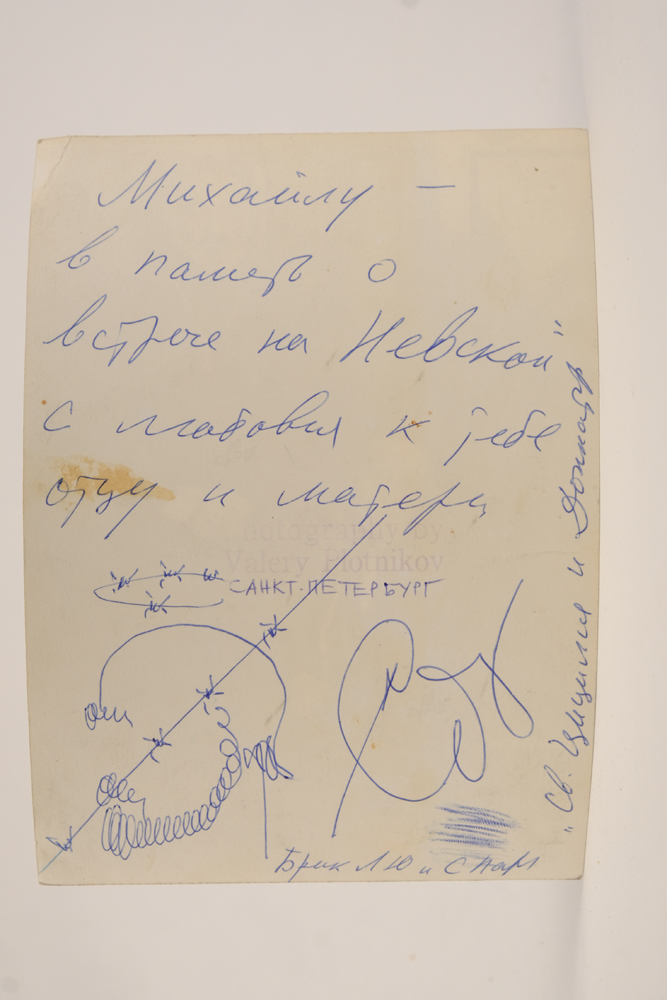 Михаилу —
в память о
встрече на Невском
с любовью к тебе
отцу и матери
Photography by
Valery Plotnikov
САНКТ-ПЕТЕРБУРГ
"Св. Цицилия и
Брик Л Ю и С